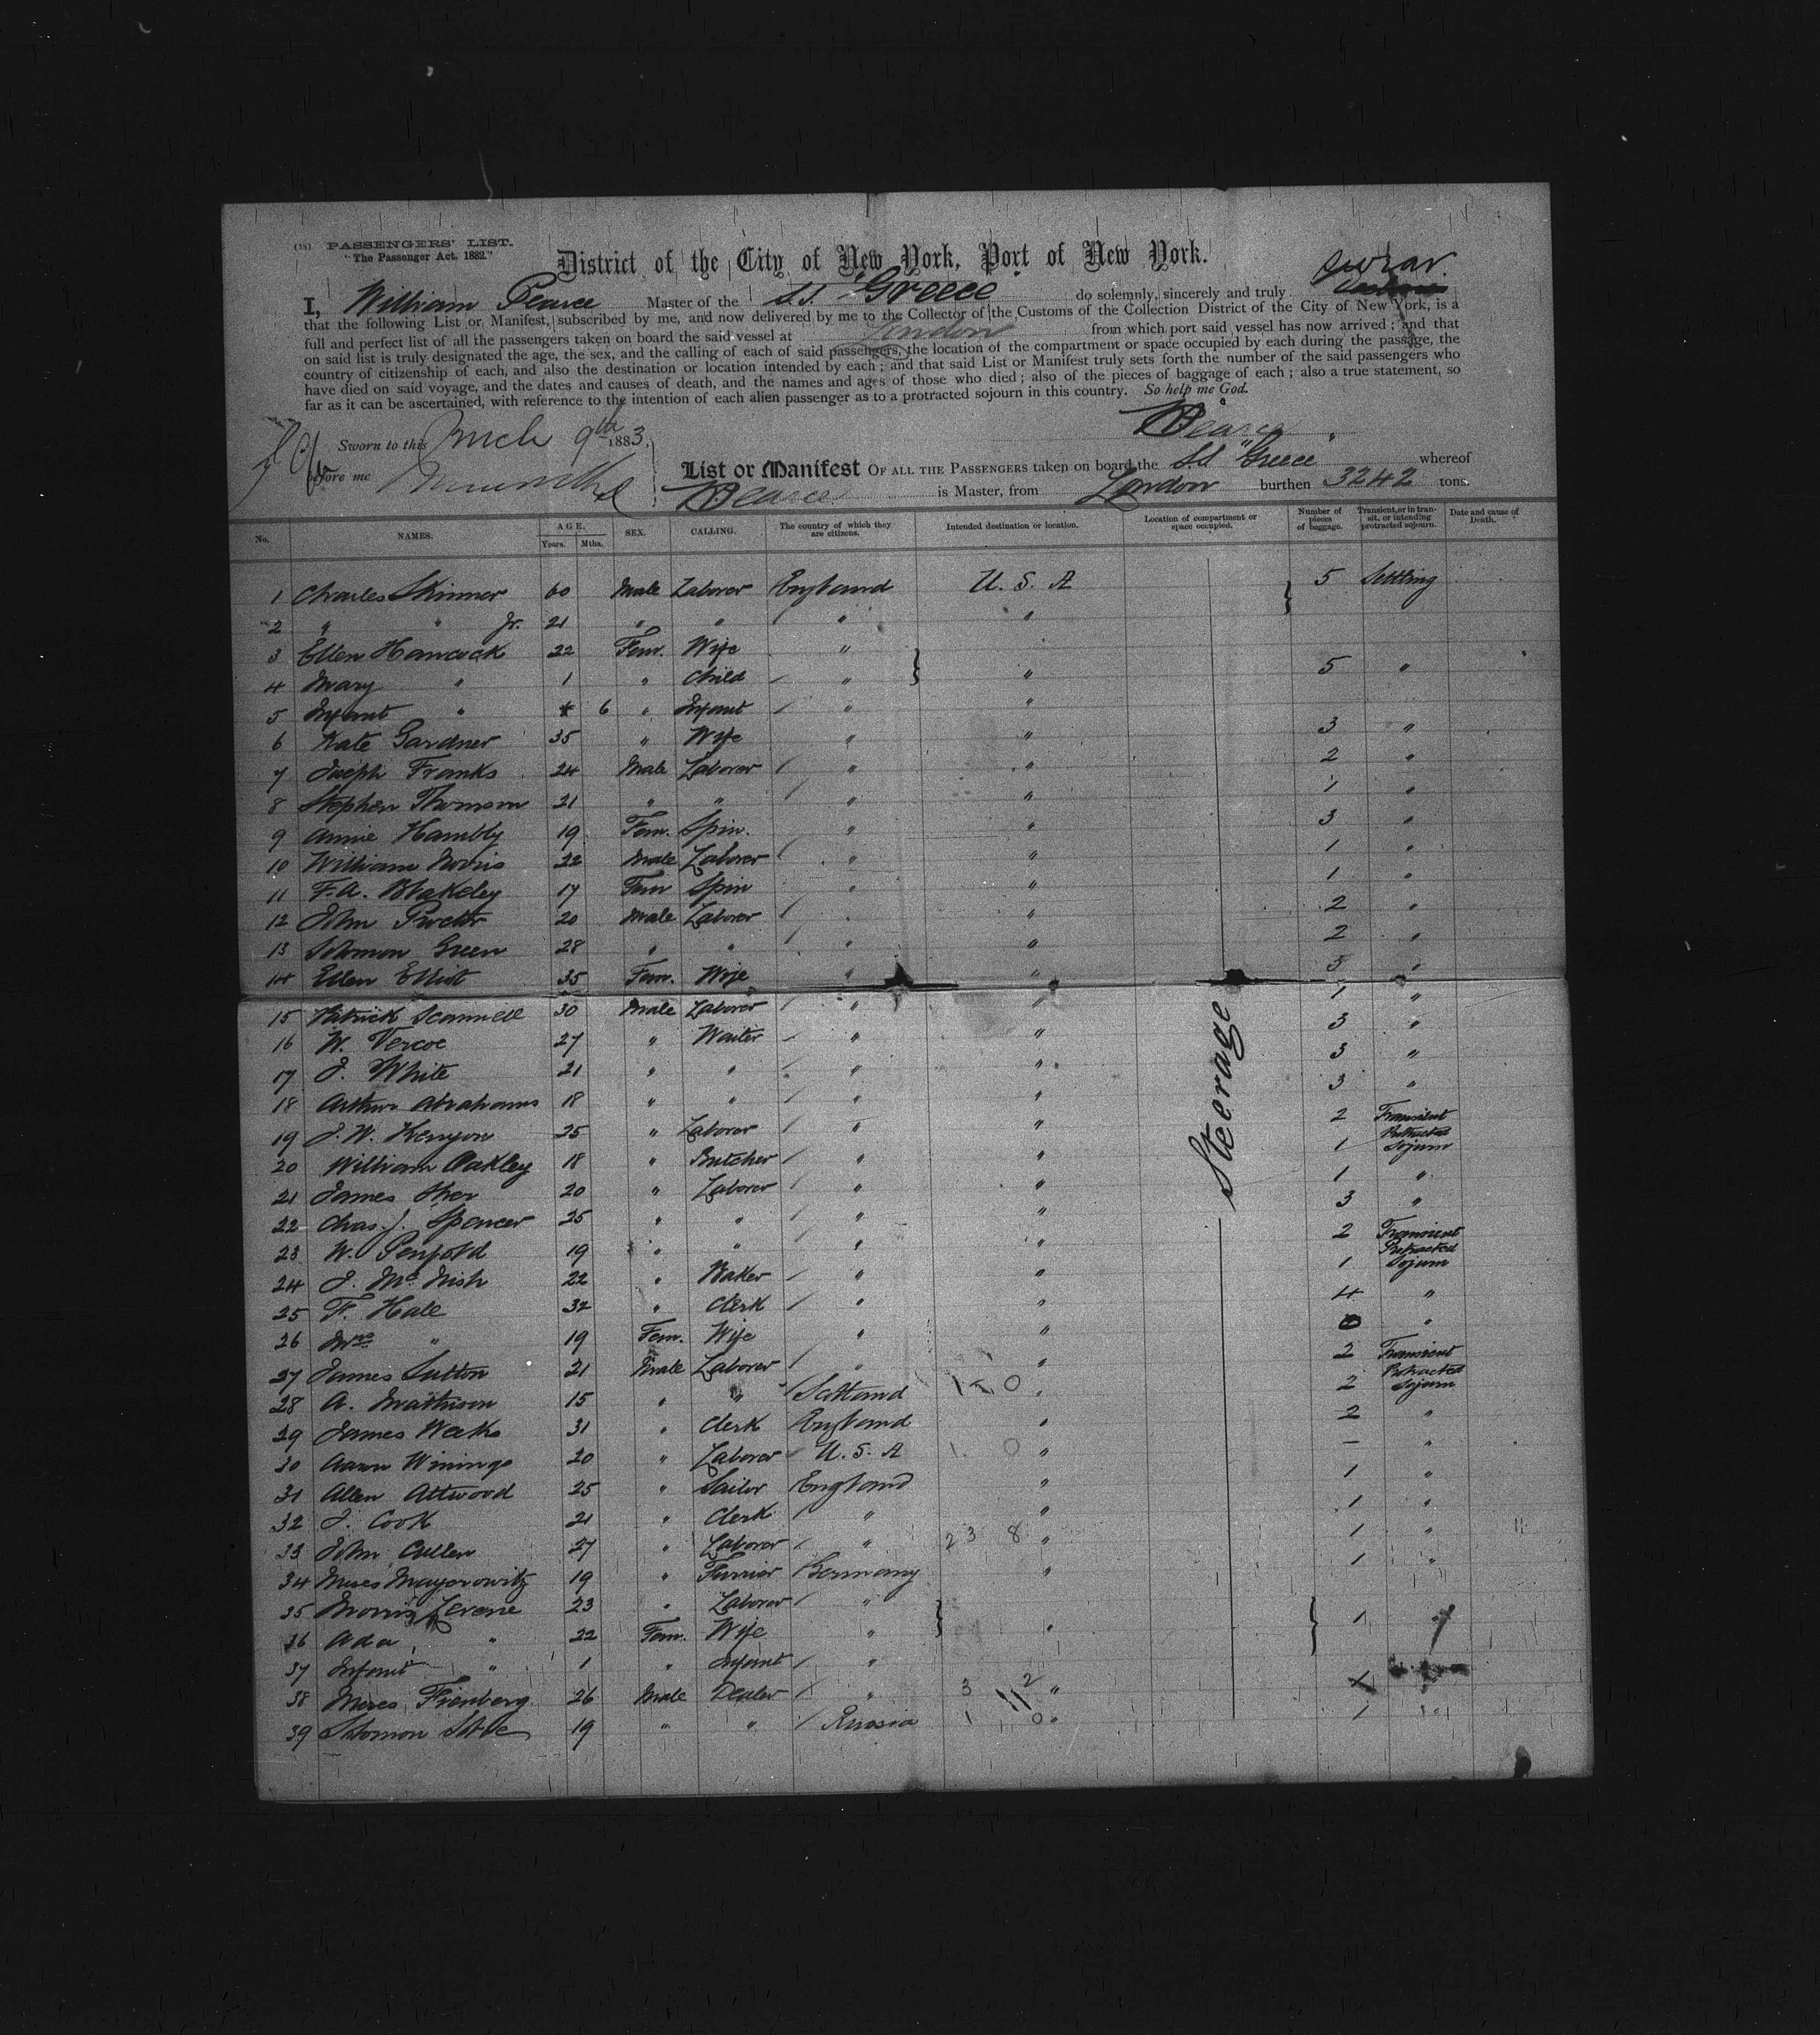 (18) PASSENGERS' LIST.
"The Passenger Act, 1882."
District of the City of New York, Port of New York.
I, William Pearce Master of the S.S. "Greece" do solemnly, sincerely and truly swear
that the following List or Manifest, subscribed by me, and now delivered by me to the Collector of the Customs of the Collection District of the City of New York, is a
full and perfect list of all the passengers taken on board the said vessel at London from which port said vessel has now arrived; and that
on said list is truly designated the age, the sex, and the calling of each of said passengers, the location of the compartment or space occupied by each during the passage, the
country of citizenship of each, and also the destination or location intended by each; and that said List or Manifest truly sets forth the number of the said passengers who
have died on said voyage, and the dates and causes of death, and the names and ages of those who died; also of the pieces of baggage of each; also a true statement, so
far as it can be ascertained, with reference to the intention of each alien passenger as to a protracted sojourn in this country. So help me God.
WPearce
Sworn to this Mch 9th 1883,
before me
List or Manifest OF ALL THE PASSENGERS taken on board the SS "Greece" whereof
WPearce is Master, from London burthen 3242 tons.
No. NAMES. AGE. Years. Mths. SEX. CALLING. The country of which they are citizens. Intended destination or location. Location of compartment or space occupied. Number of pieces of baggage. Transient, or in transit, or intending protracted sojourn. Date and cause of Death.
1 Charles Skinner 60 Male Laborer England U. S. A 5 Settling
2 " " Jr. 21 " " " "
3 Ellen Hancock 22 Fem. Wife "
4 Mary " 1 " Child " " 5 "
5 Infant " 6 " Infant " "
6 Kate Gardner 35 " Wife " " 3 "
7 Joseph Franks 24 Male Laborer " " 2 "
8 Stephen Thomson 21 " " " " 1 "
9 Annie Hambly 19 Fem. Spin. " " 3 "
10 William Norris 22 Male Laborer " " 1 "
11 F.A. Blakeley 17 Fem Spin " " 1 "
12 John Procter 20 Male Laborer " " 2 "
13 Solomon Green 28 " " " " 2 "
14 Ellen Elliott 35 Fem. Wife " " 5 "
15 Patrick Scannell 30 Male Laborer " " 1 "
16 W. Vercoe 27 " Waiter " " 3 "
17 J. White 21 " " " " 3 "
18 Arthur Abrahams 18 " " " " 3 "
19 J. W. Kenyon 25 " Laborer " " 2 Transient
20 William Oakley 18 " Butcher " " 1 Protracted Sojurn
21 James 20 " Laborer " " 1 "
22 Chas. J. Spencer 25 " " " " 3 "
23 W. Penfold 19 " " " " 2 Transient
24 J. McNish 22 " Baker " " 1 Protracted Sojurn
25 F. Hale 32 " Clerk " " 4 "
26 Mrs " 19 Fem. Wife " " 0 "
27 James Sutton 21 Male Laborer " " 2 Transient
28 A. Mathison 15 " " Scotland " 2 Protracted Sojurn
29 James Weeks 31 " Clerk England " 2 "
30 Aaron Winings 20 " Laborer U. S. A 1 0 " – "
31 Allen Attwood 25 " Sailor England " 1 "
32 J. Cook 21 " Clerk " " 1 "
33 John Cullen 27 " Laborer " 23 8 " 1 "
34 Moses Mayerowitz 19 " Furrier Germany " 1 "
35 Morris Levene 23 " Laborer "
36 Ada " 22 Fem. Wife " " 1
37 Infant " 1 " Infant "
38 Moses Fienberg 26 Male Dealer " 3 2 "
39 Solomon 19 " " Russia 1 0 " 1
Steerage